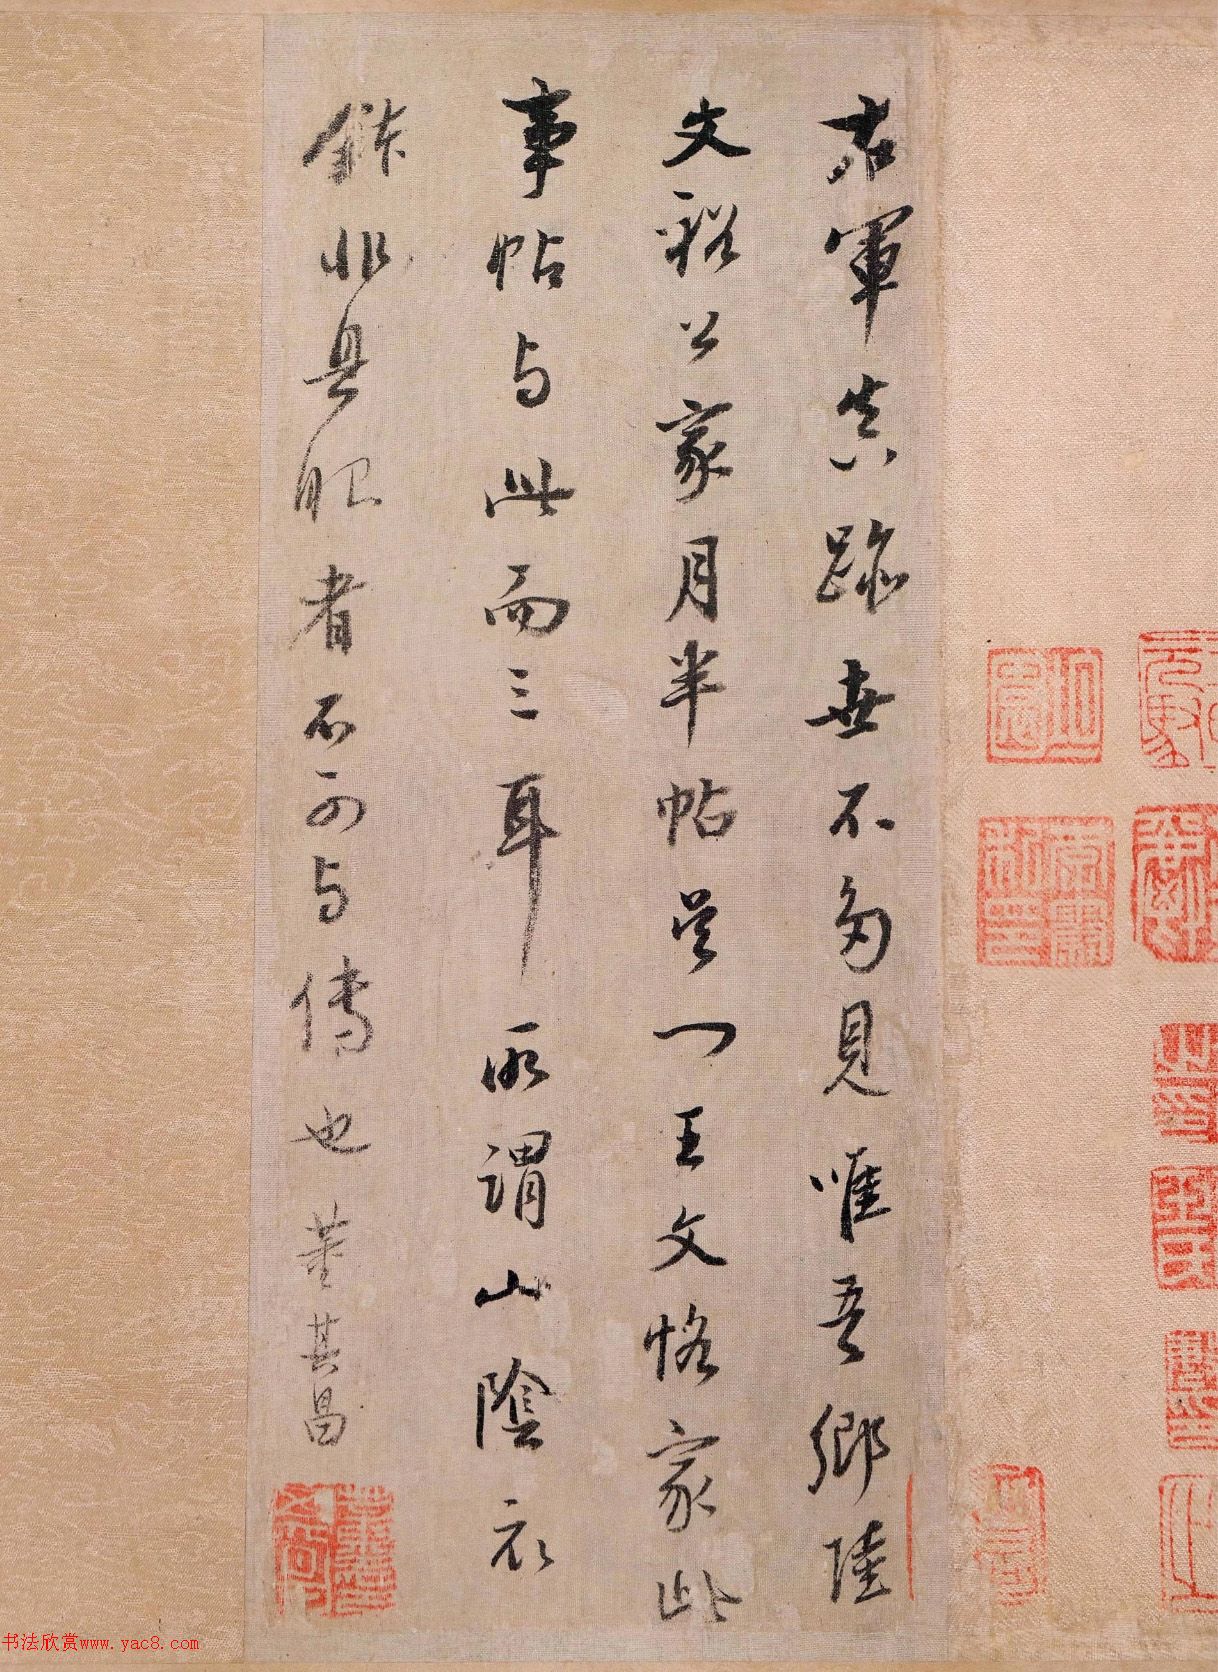 右軍真跡世不多見唯吾鄉陸
文裕公家月半帖吳门王文恪家此
事帖与此而三耳所謂山陰衣
鉢非具眼者不可与傳也 董其昌
书法欣赏www.yac8.com